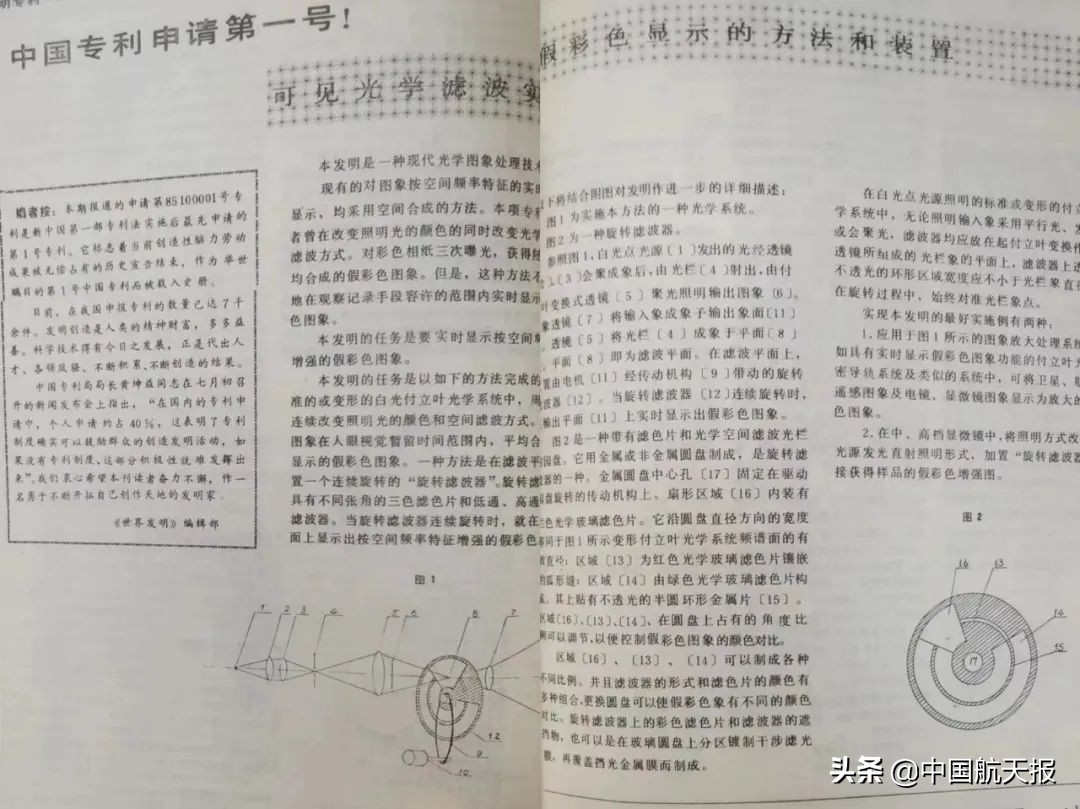 中国专利申请第一号！
可见光学滤波实
编者按：本期报道的申请第85100001号专
利是新中国第一部专利法实施后最先申请的
第1号专利。它标志着当前创造性脑力劳动
成果被无偿占有的历史宣告结束，作为举世
瞩目的第1号中国专利而被载入史册。
目前，在我国申报专利的数量已达7千
余件。发明创造是人类的精神财富，多多益
善。科学技术得有今日之发展，正是代出人
才、各领风骚、不断积累、不断创造的结果。
中国专利局局长黄坤益同志在七月初召
开的新闻发布会上指出，“在国内的专利申
请中，个人申请约占40%，这表明了专利
制度确实可以鼓励群众的创造发明活动，如
果没有专利制度，这部分积极性就难发挥出
来”。我们衷心希望本刊读者奋力不懈，作一
名勇于不断开拓自己创作天地的发明家。
《世界发明》编辑部
本发明是一种现代光学图象处理技术
现有的对图象按空间频率特征的实时
显示，均采用空间合成的方法。本项专利
者曾在改变照明光的颜色的同时改变光学
滤波方式。对彩色相纸三次曝光，获得随
均合成的假彩色图象。但是，这种方法不
地在观察记录手段容许的范围内实时显示
色图象。
本发明的任务是要实时显示按空间频
增强的假彩色图象。
本发明的任务是以如下的方法完成的
准的或变形的白光付立叶光学系统中，周
连续改变照明光的颜色和空间滤波方式。
图象在人眼视觉暂留时间范围内，平均合
显示的假彩色图象。一种方法是在滤波平
置一个连续旋转的“旋转滤波器”。旋转滤
具有不同张角的三色滤色片和低通、高通
滤波器。当旋转滤波器连续旋转时，就在
面上显示出按空间频率特征增强的假彩色
图1
1 2 3 4 5 6 8 7
12
9
10
假彩色显示的方法和装置
下将结合附图对发明作进一步的详细描述：
图1为实施本方法的一种光学系统。
图2为一种旋转滤波器。
参照图1，白光点光源〔1〕发出的光经透镜
〔3〕会聚成象后，由光栏〔4〕射出，由付
叶变换式透镜〔5〕聚光照明输出图象〔6〕。
象透镜〔7〕将输入象成象于输出象面〔11〕
透镜〔5〕将光栏〔4〕成象于平面〔8〕
平面〔8〕即为滤波平面。在滤波平面上，
置由电机〔11〕经传动机构〔9〕带动的旋转
波器〔12〕。当旋转滤波器〔12〕连续旋转时，
输出平面〔11〕上实时显示出假彩色图象。
图2是一种带有滤色片和光学空间滤波光栏
的园盘。它用金属或非金属圆盘制成，是旋转滤
波器的一种。金属圆盘中心孔〔17〕固定在驱动
盘旋转的传动机构上。扇形区域〔16〕内装有
色光学玻璃滤色片。它沿圆盘直径方向的宽度
等同于图1所示变形付立叶光学系统频谱面的有
效直径；区域〔13〕为红色光学玻璃滤色片镶嵌
的弧形缝；区域〔14〕由绿色光学玻璃滤色片构
成。其上贴有不透光的半圆环形金属片〔15〕。
区域〔16〕、〔13〕、〔14〕、在圆盘上占有的角度比
例可以调节，以便控制假彩色图象的颜色对比。
区域〔16〕、〔13〕、〔14〕可以制成各种
不同比例。并且滤波器的形式和滤色片的颜色有
多种组合。更换圆盘可以使假彩色象有不同的颜色
对比。旋转滤波器上的彩色滤色片和滤波器的遮
挡物，也可以是在玻璃圆盘上分区镀制干涉滤光
膜，再覆盖挡光金属膜而制成。
在白光点光源照明的标准或变形的付立
学系统中，无论照明输入象采用平行光、发
或会聚光，滤波器均应放在起付立叶变换作
透镜所组成的光栏象的平面上，滤波器上透
不透光的环形区域宽度应不小于光栏象直径
在旋转过程中，始终对准光栏象点。
实现本发明的最好实施例有两种：
1.应用于图1所示的图象放大处理系统
如具有实时显示假彩色图象功能的付立叶光
密导轨系统及类似的系统中，可将卫星、航
遥感图象及电镜、显微镜图象显示为放大的
色图象。
2.在中、高档显微镜中，将照明方式改
光源发光直射照明形式，加置“旋转滤波
接获得样品的假彩色增强图。
图2
16 13
14
15
17
头条 @中国航天报